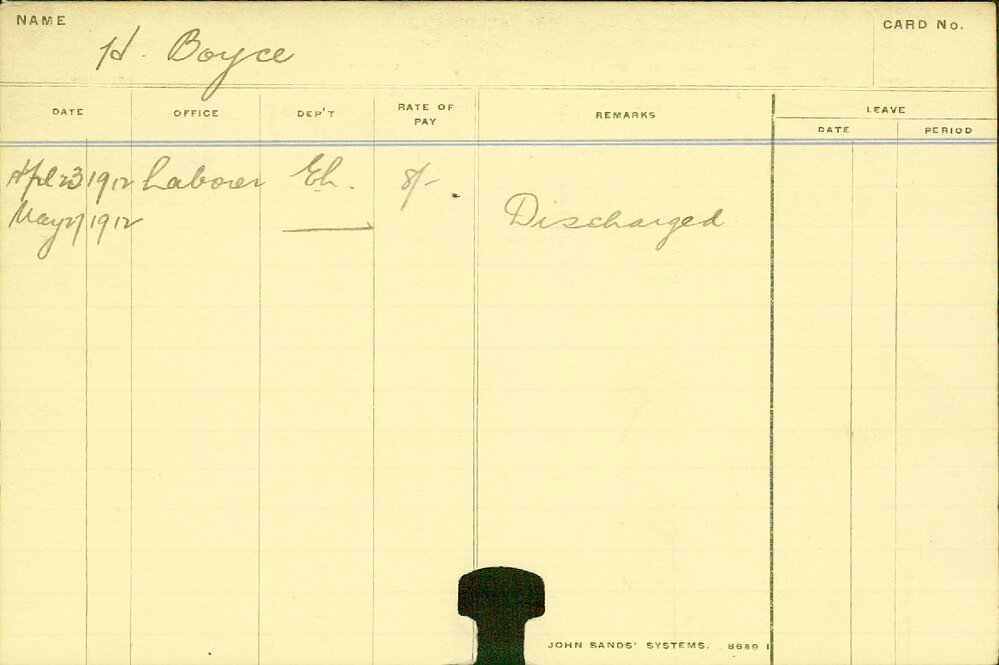 NAME
H. Boyce
CARD No.
DATE OFFICE DEP'T RATE OF PAY REMARKS LEAVE
DATE PERIOD
Apl 23 1912 Laborer Eh. 8/-
May 27 1912 Discharged
JOHN SANDS' SYSTEMS.